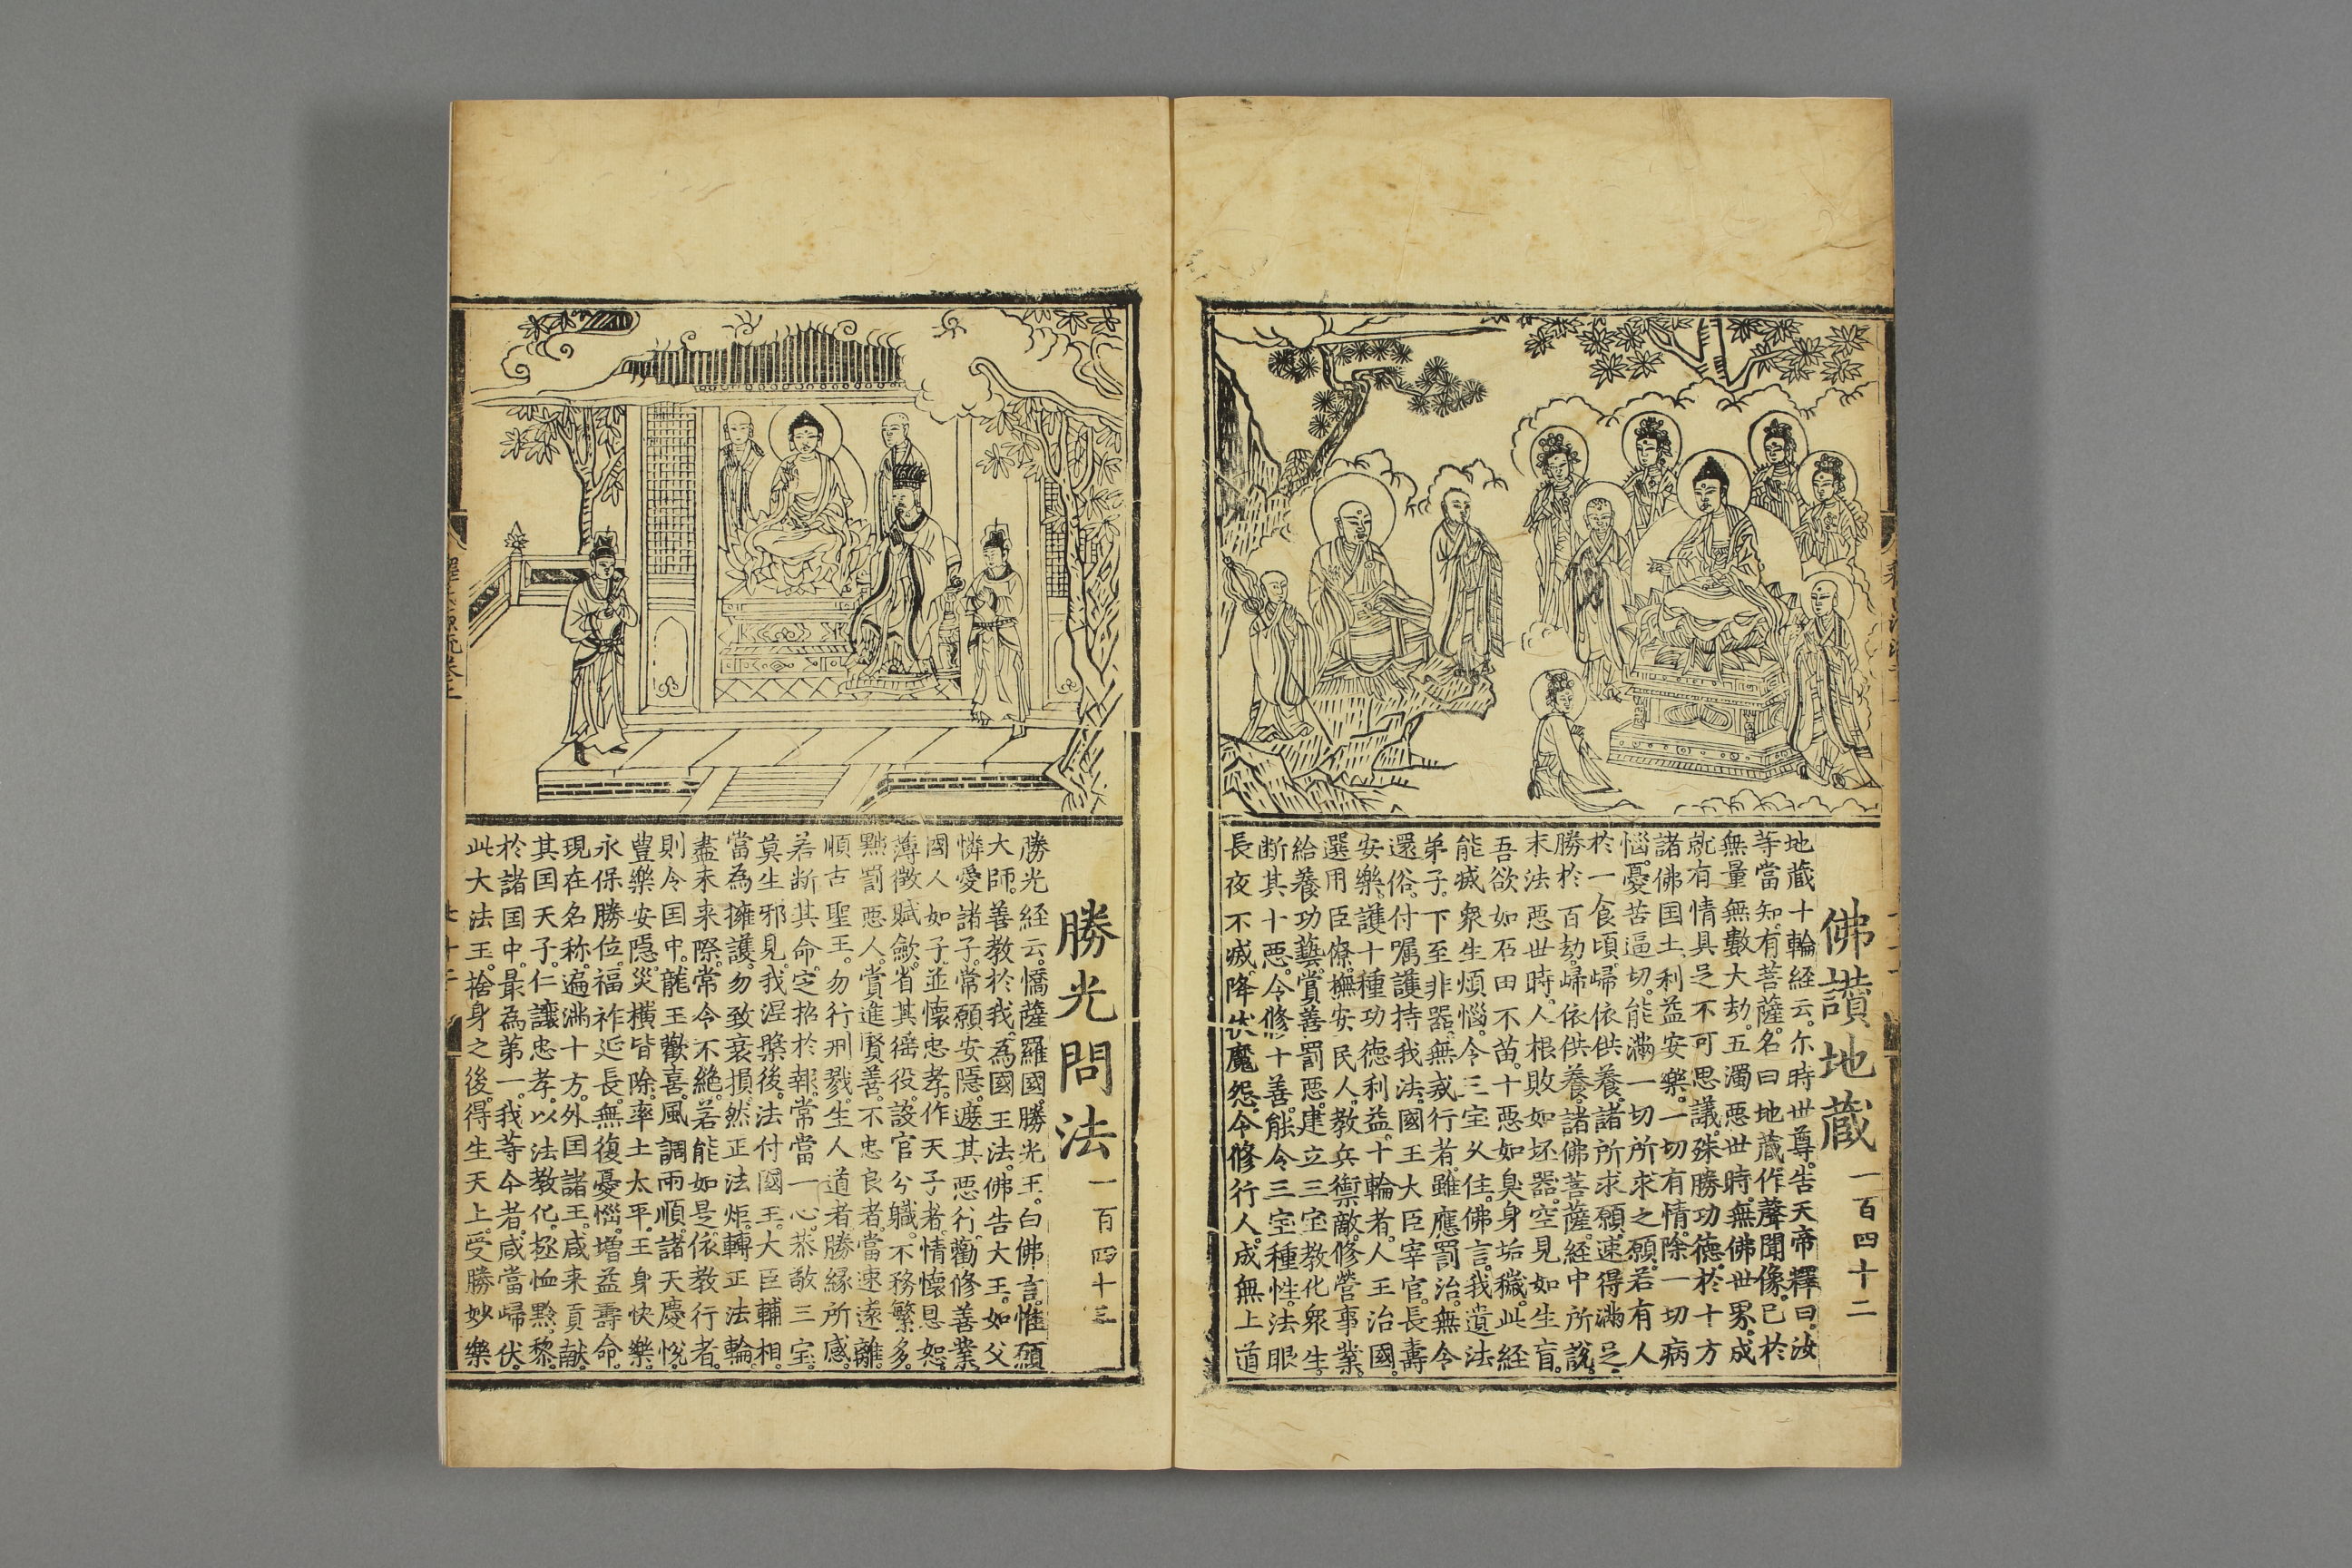 佛讃地蔵 一百四十二
地蔵十輪経云尒時世尊告天帝釋曰汝
等當知有菩薩名曰地蔵作聲聞像已於
無量無數大劫五濁惡世時無佛世界成
就有情具足不可思議殊勝功德於十方
諸佛囯土利益安樂一切有情除一切病
惱憂苦逼切能滿一切所求之願若有人
於一食頃歸依供養諸所求願速得滿足
勝於百劫歸依供養諸佛菩薩経中所說
末法惡世時人根敗如坯器空見如生盲
吾欲如石田不苗十惡如臭身垢穢此経
能㓕衆生煩惱令三宝乆住佛言我遺法
弟子下至非器無戒行者雖應罰治無令
還俗付嘱護持我法國王大臣宰官長壽
安樂護十種功德利益十輪者人王治國
選用臣僚撫安民人教兵禦敵修營事業
給養功藝賞善罰惡建立三宝教化衆生
断其十惡令修十善能令三宝種性法眼
長夜不㓕降伏魔怨令修行人成無上道
勝光問法 一百四十三
勝光経云憍薩羅國勝光王白佛言惟願
大師善教於我為國王法佛告大王如父
憐愛諸子常願安隱遮其惡行勸修善業
國人如子並懷忠孝作天子者情懷恩恕
薄徴賦歛省其徭役設官分職不務繁多
黜罰惡人賞進賢善不忠良者當速遠離
順古聖王勿行刑戮生人道者勝緣所感
若断其命定招於報常當一心恭敬三宝
莫生邪見我涅槃後法付國王大臣輔相
當為擁護勿致衰損然正法炬轉正法輪
盡未来際常令不絶若能如是依教行者
則令囯中龍王歡喜風調雨順諸天慶悅
豊樂安隱災橫皆除率土太平王身快樂
永保勝位福祚延長無復憂惱增益壽命
現在名称遍滿十方外囯諸王咸来貢献
其囯天子仁讓忠孝以法教化拯恤黔黎
於諸囯中最為苐一我等今者咸當歸伏
此大法王捨身之後得生天上受勝妙樂